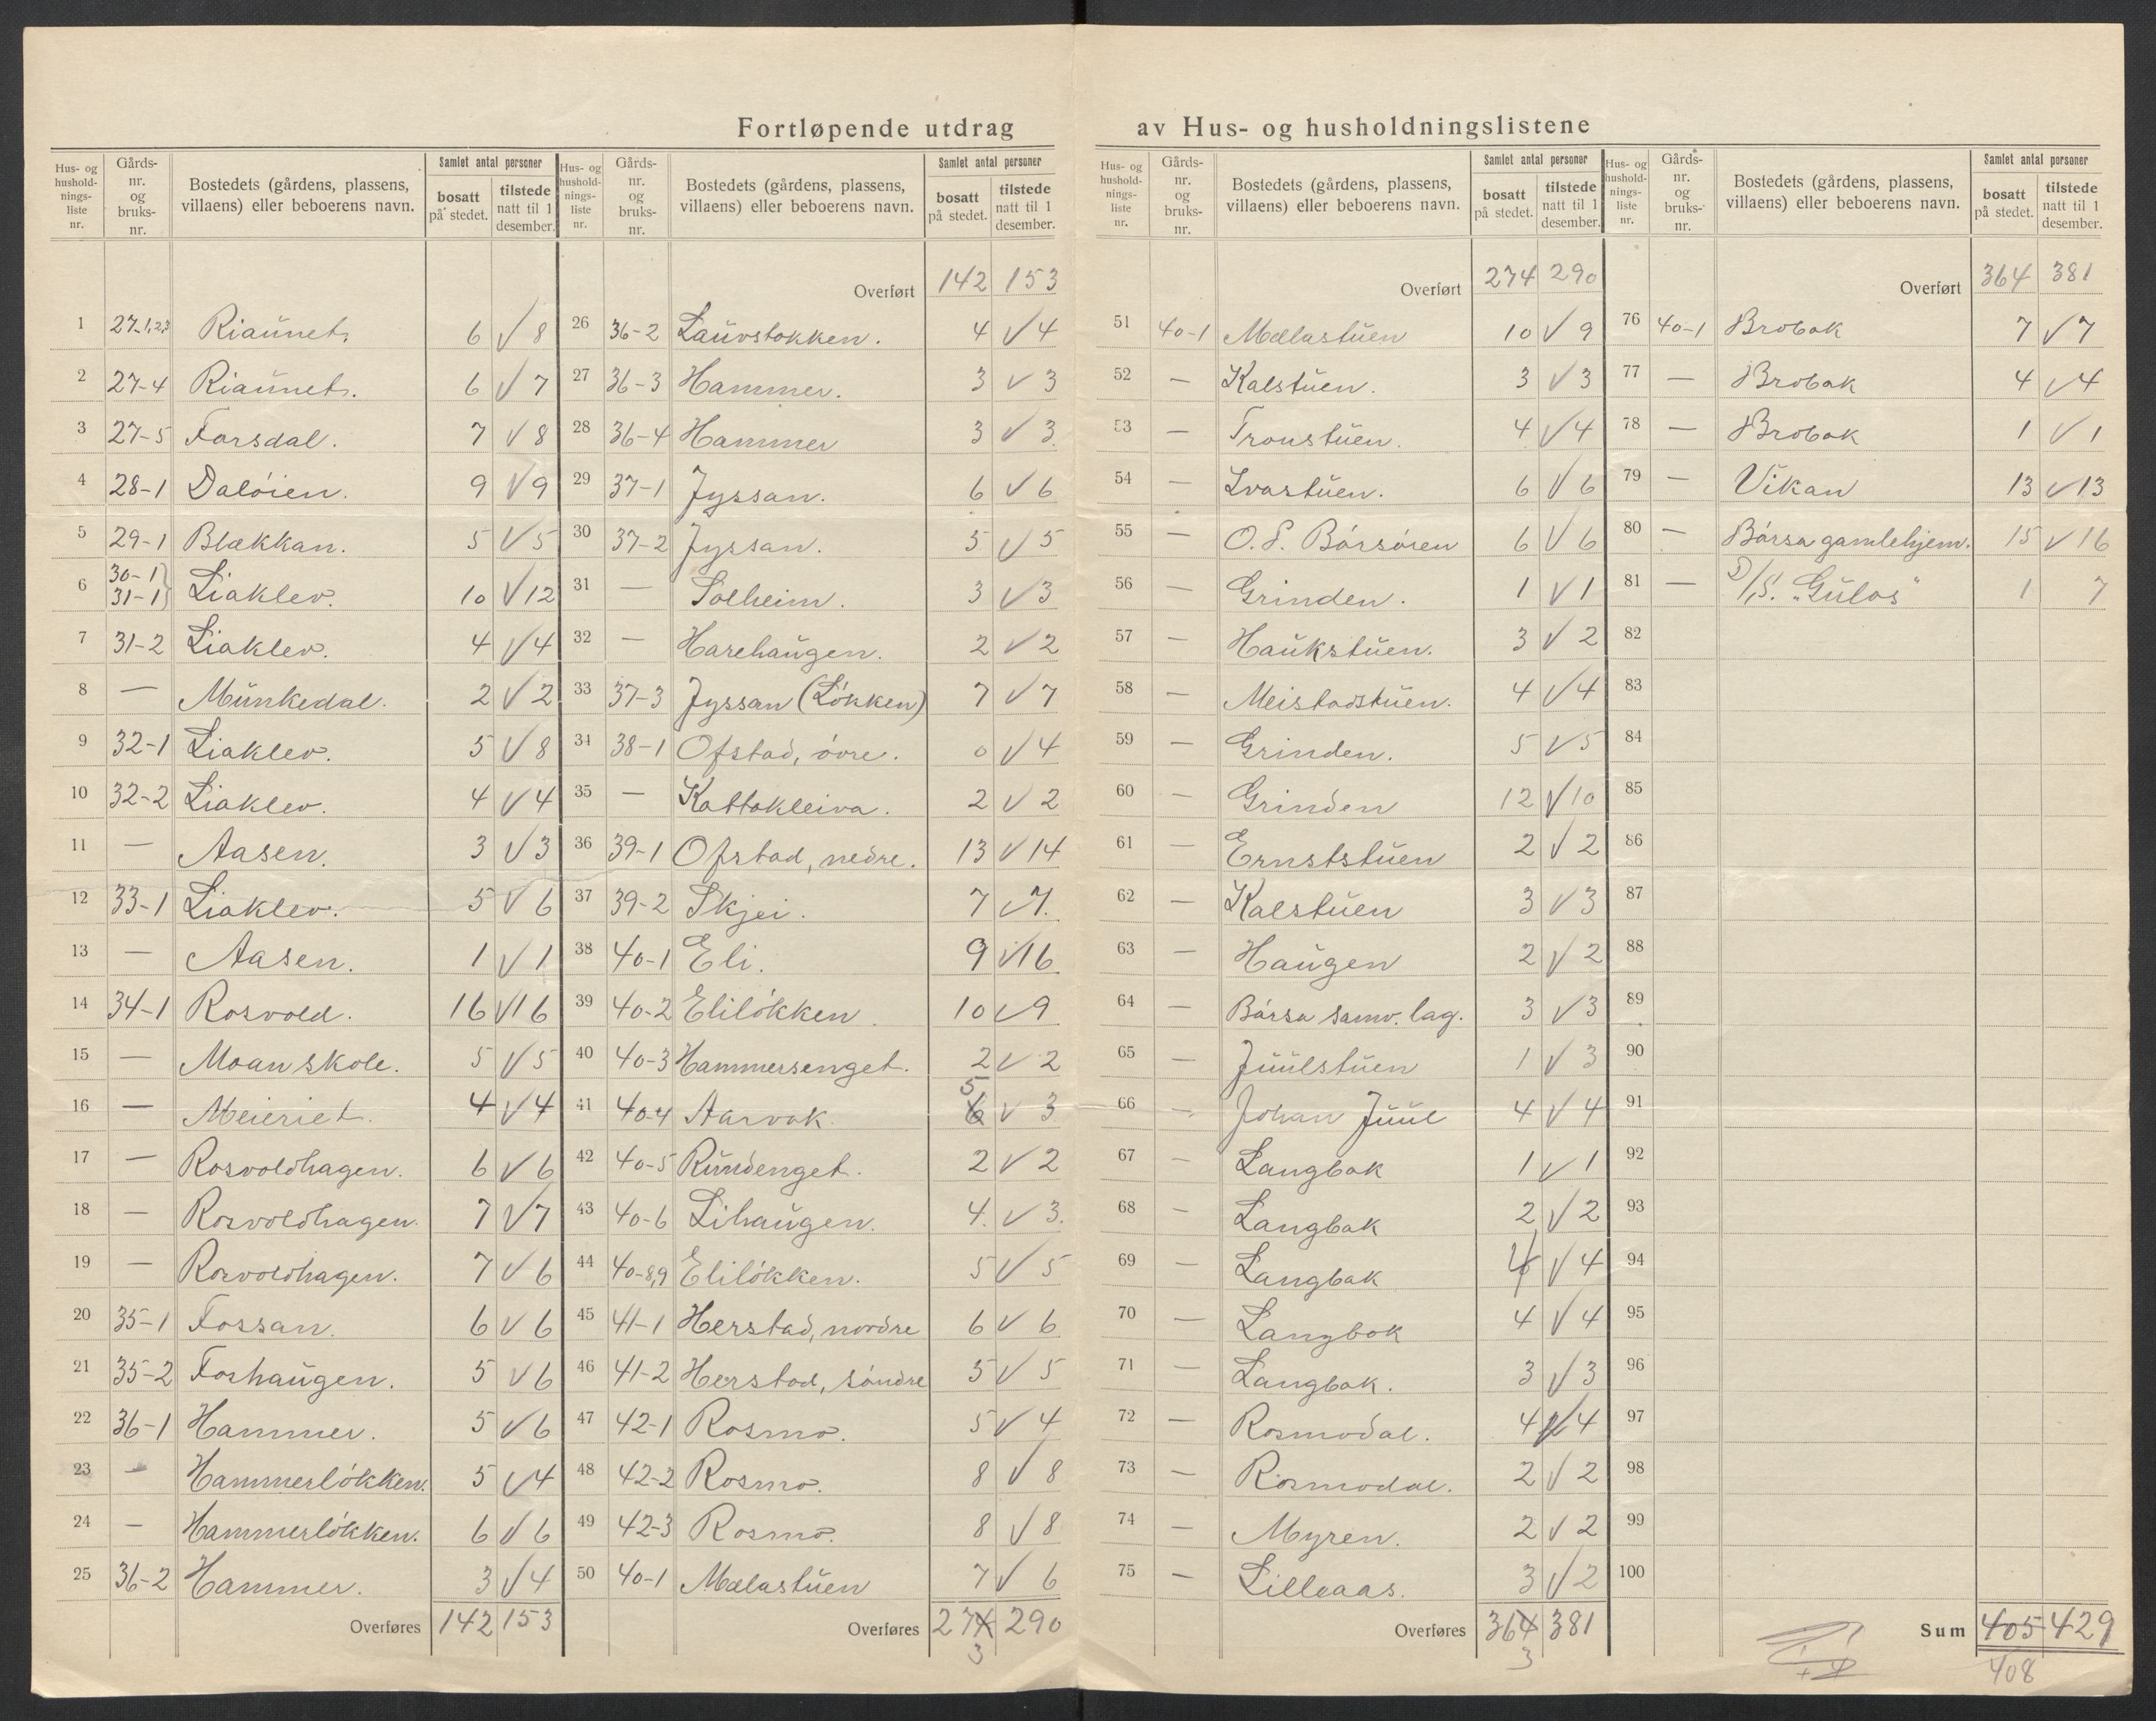 Fortløpende utdrag av Hus- og husholdningslistene
Hus- og husholdnings-liste nr. | Gårds-nr. og bruks-nr. | Bostedets (gårdens, plassens, villaens) eller beboerens navn. | Samlet antal personer | bosatt på stedet. | tilstede natt til 1 desember.
1 27-1,2,3 Riaunet. 6 √ 8
2 27-4 Riaunet. 6 √ 7
3 27-5 Forsdal. 7 √ 8
4 28-1 Daløien. 9 √ 9
5 29-1 Blekkan. 5 √ 5
6 30-1 31-1} Liaklev. 10 √ 12
7 31-2 Liaklev. 4 √ 4
8 — Munkedal. 2 √ 2
9 32-1 Liaklev. 5 √ 8
10 32-2 Liaklev. 4 √ 4
11 — Aasen. 3 √ 3
12 33-1 Liaklev. 5 √ 6
13 — Aasen. 1 √ 1
14 34-1 Rosvold. 16 √ 16
15 — Moan skole. 5 √ 5
16 — Meieriet. 4 √ 4
17 — Rosvoldhagen. 6 √ 6
18 — Rosvoldhagen. 7 √ 7
19 — Rosvoldhagen. 7 √ 6
20 35-1 Fossan. 6 √ 6
21 35-2 Foshaugen. 5 √ 6
22 36-1 Hammer. 5 √ 6
23 — Hammerløkken. 5 √ 4
24 — Hammerløkken. 6 √ 6
25 36-2 Hammer. 3 √ 4
Overføres 142 153
Hus- og husholdnings-liste nr. | Gårds-nr. og bruks-nr. | Bostedets (gårdens, plassens, villaens) eller beboerens navn. | Samlet antal personer | bosatt på stedet. | tilstede natt til 1 desember.
Overført 142 153
26 36-2 Lauvstokken. 4 √ 4
27 36-3 Hammer. 3 √ 3
28 36-4 Hammer 3 √ 3.
29 37-1 Jyssan. 6 √ 6
30 37-2 Jyssan. 5 √ 5
31 — Solheim. 3 √ 3
32 — Harehaugen. 2 √ 2
33 37-3 Jyssan (Løkken) 7 √ 7
34 38-1 Ofstad, øvre. 0 √ 4
35 — Kattakleiva. 2 √ 2
36 39-1 Ofstad, nedre. 13 √ 14
37 39-2 Skjei. 7 √ 7.
38 40-1 Eli. 9 √ 16
39 40-2 Eliløkken. 10 √ 9
40 40-3 Hammersenget. 2 √ 2
41 40-4 Aarvak 6 5 √ 3
42 40-5 Rundenget. 2 √ 2
43 40-6 Lihaugen. 4. √ 3.
44 40-8,9 Eliløkken. 5 √ 5
45 41-1 Herstad, nordre 6 √ 6
46 41-2 Herstad, søndre 5 √ 5
47 42-1 Rosmo. 5 √ 4
48 42-2 Rosmo. 8 √ 8
49 42-3 Rosmo. 8 √ 8
50 40-1 Melastuen 7 √ 6
Overføres 274 290
3
Hus- og husholdnings-liste nr. | Gårds-nr. og bruks-nr. | Bostedets (gårdens, plassens, villaens) eller beboerens navn. | Samlet antal personer | bosatt på stedet. | tilstede natt til 1 desember.
Overført 274 290
51 40-1 Melastuen 10 √ 9
52 — Kalstuen. 3 √ 3
53 — Tronstuen. 4 √ 4
54 — Ivastuen. 6 √ 6
55 — O. P. Børsøien 6 √ 6
56 — Grinden. 1 √ 1
57 — Haukstuen. 3 √ 2
58 — Meistadstuen. 4 √ 4
59 — Grinden. 5 √ 5
60 — Grinden 12 √ 10
61 — Ernststuen 2 √ 2
62 — Kalstuen 3 √ 3
63 — Haugen 2 √ 2
64 — Børsa samv. lag. 3 √ 3
65 — Juulstuen 1 √ 3
66 — Johan Juul 4 √ 4
67 — Langbak 1 √ 1
68 — Langbak 2 √ 2
69 — Langbak 4 √ 4
70 — Langbak 4 √ 4
71 — Langbak. 3 √ 3
72 — Rosmodal. 4 √ 4
73 — Rosmodal. 2 √ 2
74 — Myren. 2 √ 2
75 — Lilleaas. 3 √ 2
Overføres 364 381
3
Hus- og husholdnings-liste nr. | Gårds-nr. og bruks-nr. | Bostedets (gårdens, plassens, villaens) eller beboerens navn. | Samlet antal personer | bosatt på stedet. | tilstede natt til 1 desember.
Overført 364 381
76 40-1 Brobak 7 √ 7
77 — Brobak 4 √ 4
78 — Brobak 1 √ 1
79 — Vikan 13 √ 13
80 — Børsa gamlehjem. 15 √ 16
81 — D/S. "Gulos" 1 7
82
83
84
85
86
87
88
89
90
91
92
93
94
95
96
97
98
99
100
Sum 405 429
408